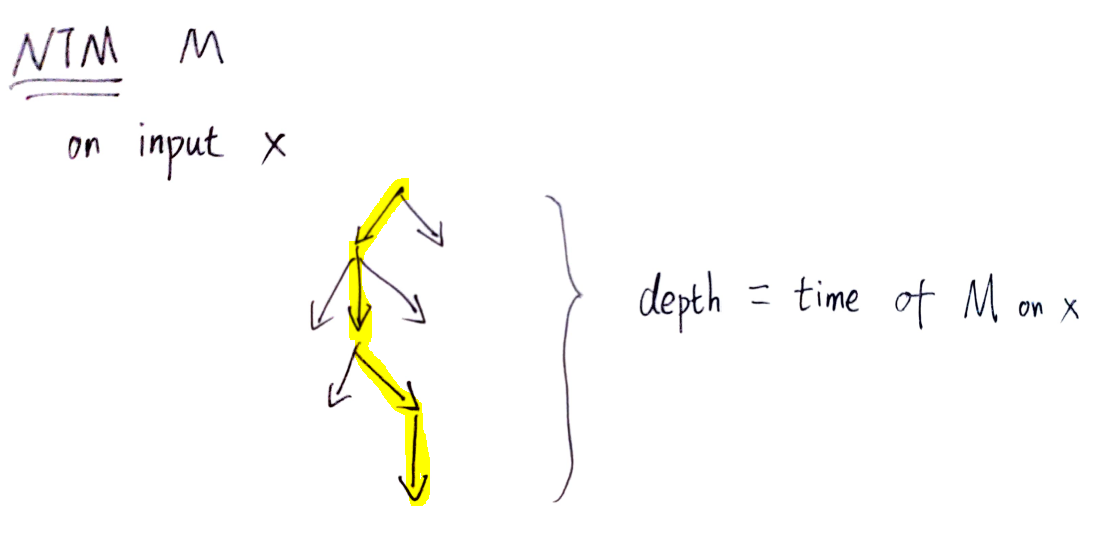 NTM M
on input x
depth = time of M on x